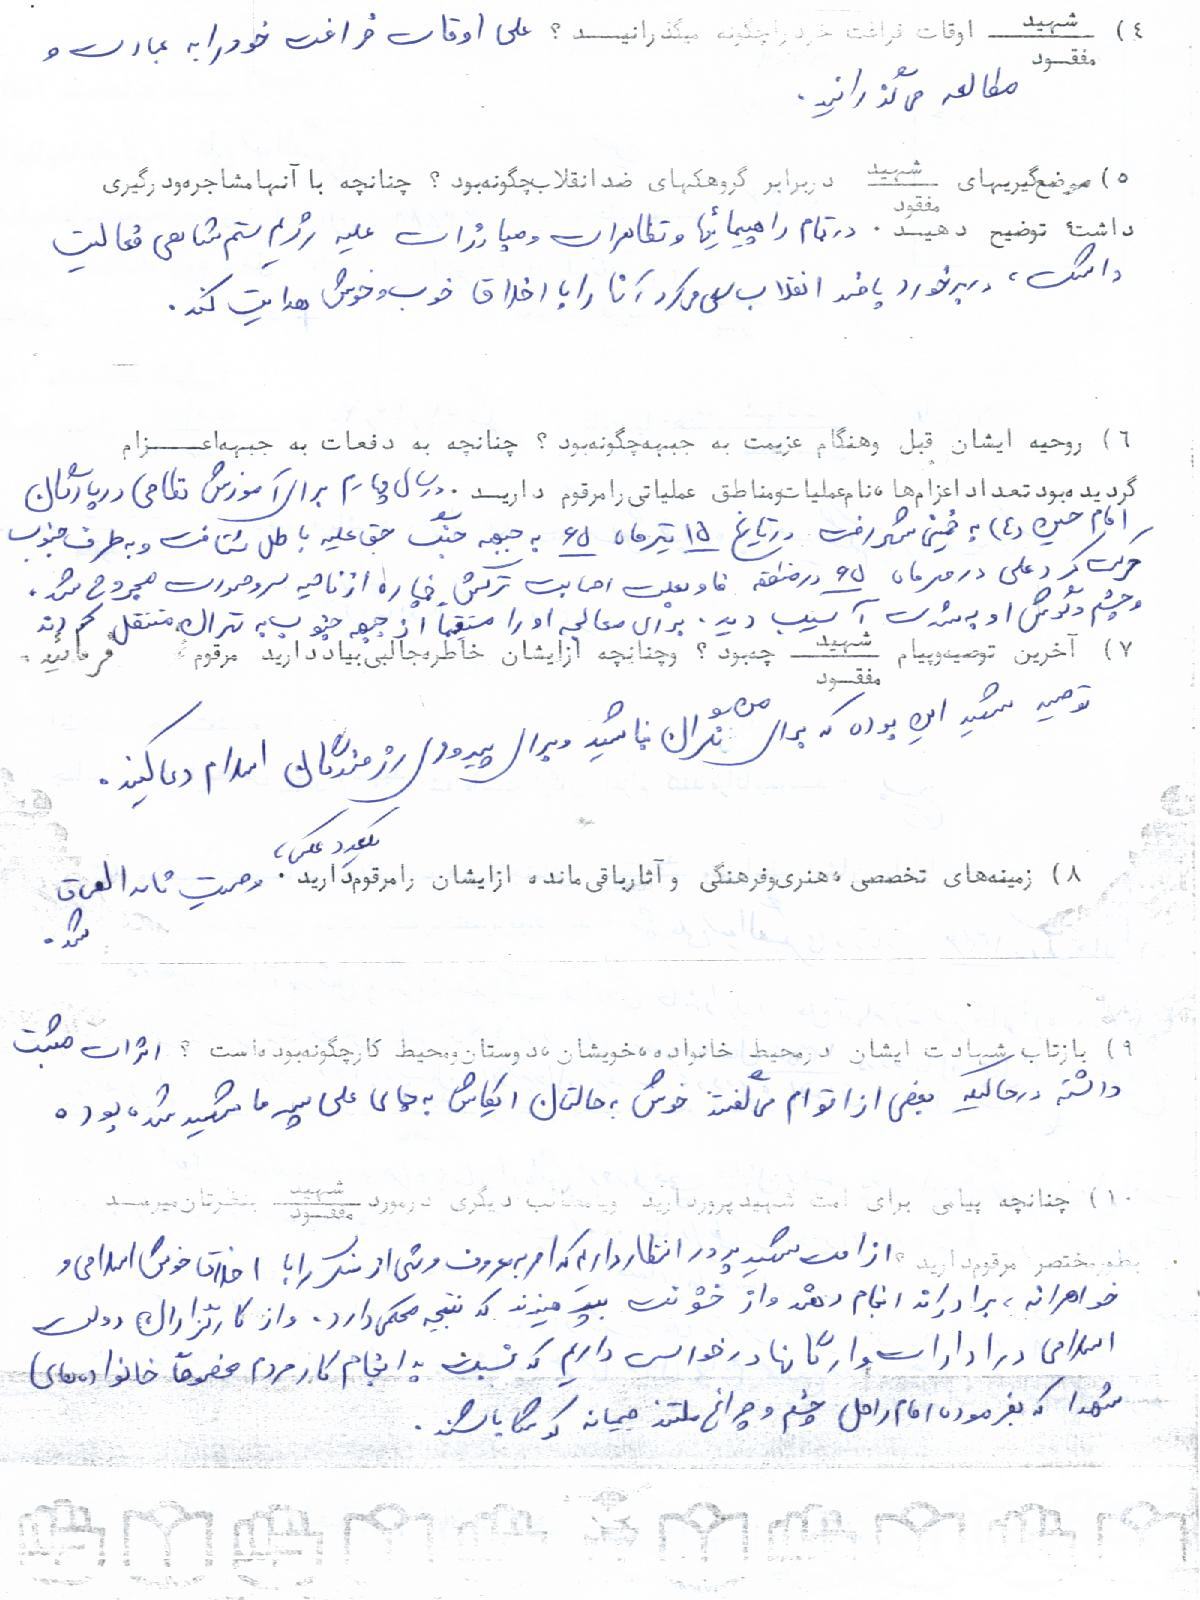 ۴) شهید / مفقود اوقات فراغت خود را چگونه میگذرانیـــد ؟ علی اوقات فراغت خود را به عبادت و
مطالعه می‌گذرانید.
۵) موضعگیریهای شهید / مفقود در برابر گروهکهای ضد انقلاب چگونه بود ؟ چنانچه با آنها مشاجره و درگیری
داشته توضیح دهیـــد . در تمام راهپیمائیها و تظاهرات و مبارزات علیه رژیم ستم شاهی فعالیت
داشت، در برخورد با ضد انقلاب سعی می‌کرد آنها را با اخلاق خوب و خوش هدایت کند.
۶) روحیه ایشان قبل و هنگام عزیمت به جبهه چگونه بود ؟ چنانچه به دفعات به جبهه اعـــزام
گردیده بود تعداد اعزام ها ، نام عملیات و مناطق عملیاتی را مرقوم داریـــد . در سال چهارم برای آموزش نظامی در پادگان
امام حسین (ع) به خمینی شهر رفت در تاریخ ۱۵ تیرماه ۶۵ به جبهه جنگ حق علیه باطل شتافت و به طرف جنوب
حرکت کرد علی در مهرماه ۶۵ در منطقه فاو بعلت اصابت ترکش خمپاره از ناحیه سر و صورت مجروح شد .
و چشم و گوش او به شدت آسیب دید . برای معالجه او را مستقیماً از جبهه جنوب به تهران منتقل کردند
۷) آخرین توصیه و پیام شهید / مفقود چه بود ؟ و چنانچه از ایشان خاطره جالبی بیاد دارید مرقوم فرمائید .
توصیه شهید این بوده که برای من نگران نباشید و برای پیروزی رزمندگان اسلام دعا کنید .
۸) زمینه های تخصصی ، هنری و فرهنگی و آثار باقی مانده از ایشان را مرقوم دارید . وصیت نامه الصاق
یکعدد عکس،
شد .
۹) بازتاب شهادت ایشان در محیط خانواده ، خویشان ، دوستان و محیط کار چگونه بوده است ؟ اثرات مثبت
داشته در حالیکه بعضی از اقوام می‌گفتند خوش به حالتان ایکاش به جای علی پسر ما شهید شده بود .
۱۰) چنانچه پیامی برای امت شهید پرور دارید و یا مطالب دیگری در مورد شهید / مفقود بنظرتان میرســـد
بطور مختصر مرقوم دارید ؟ از امت شهید پرور انتظار داریم که امر به معروف و نهی از منکر را با اخلاق خوش اسلامی و
خواهرانه ، برادرانه انجام دهند و از خشونت بپرهیزند که نتیجه دارد . و از کارگزاران دولت
اسلامی در ادارات و ارگانها درخواست داریم که نسبت به انجام کار مردم مخصوصاً خانواده‌های
شهدا که بفرموده امام راحل چشم و چراغ ملتند صمیمانه کوشا باشند .